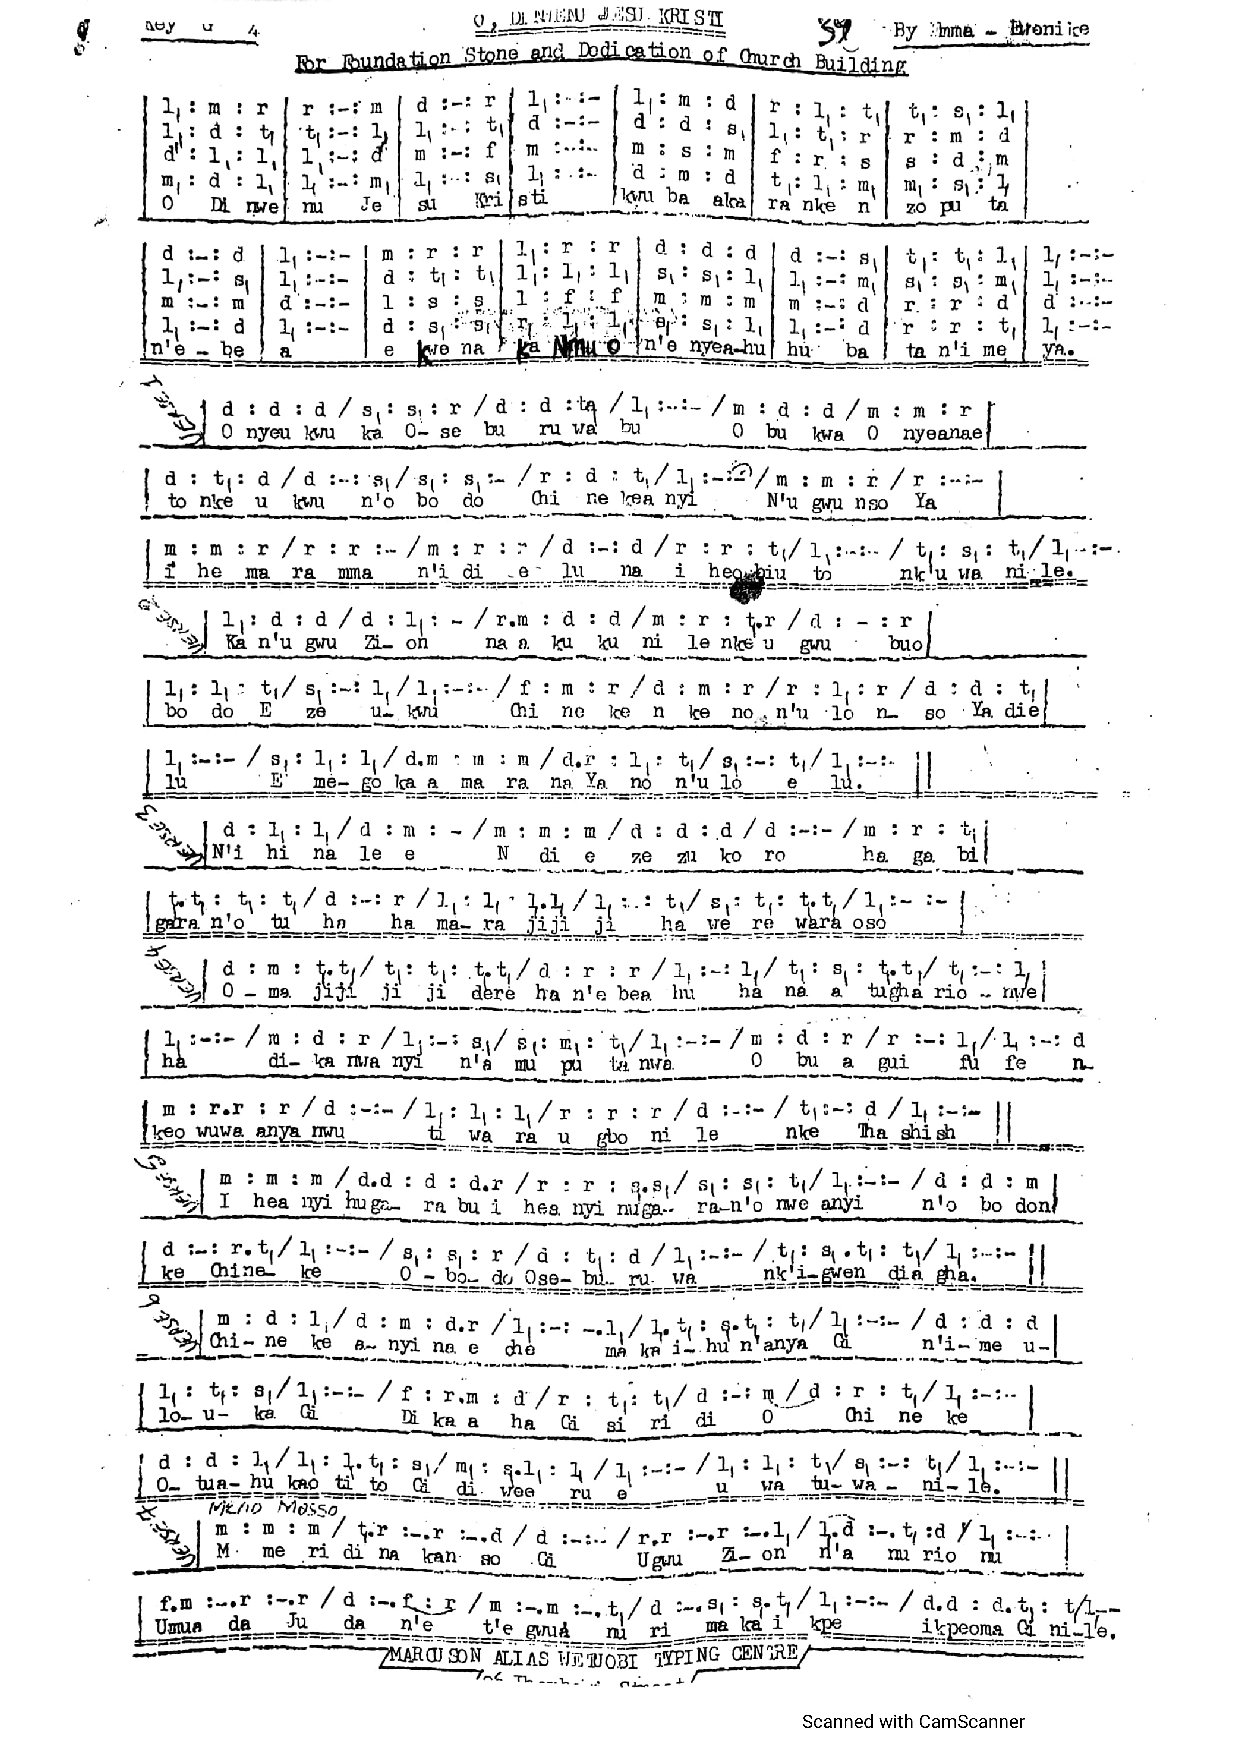 O, DI NWENU JESU KRISTI
Key G 4 59 By Emma - Ebronike
For Foundation Stone and Dedication of Church Building
l₁ : m : r | r :-: m | d :-: r | l₁ :-:- | l₁ : m : d | r : l₁ : t₁ | t₁ : s₁ : l₁
l₁ : d : t₁ | t₁ :-: l₁ | l₁ :-: t₁ | d :-:- | d : d : s₁ | l₁ : t₁ : r | r : m : d
d' : l₁ : l₁ | l₁ :-: d' | m :-: f | m :-:- | m : s : m | f : r : s | s : d : m
m₁ : d : l₁ | l₁ :-: m₁ | l₁ :-: s₁ | l₁ :-:- | d : m : d | t₁ : l₁ : m₁ | m₁ : s₁ : l₁
O Di nwe nu Je su Kri sti kwu ba aka ra nke n zo pu ta
d :-: d | l₁ :-:- | m : r : r | l₁ : r : r | d : d : d | d :-: s₁ | t₁ : t₁ : l₁ | l₁ :-:-
l₁ :-: s₁ | l₁ :-:- | d : t₁ : t₁ | l₁ : l₁ : l₁ | s₁ : s₁ : l₁ | l₁ :-: m₁ | s₁ : s₁ : m₁ | l₁ :-:-
m :-: m | d :-:- | l : s : s | l : f : f | m : m : m | m :-: d | r : r : d | d :-:-
l₁ :-: d | l₁ :-:- | d : s₁ : s₁ | r₁ : l₁ : l₁ | s₁ : s₁ : l₁ | l₁ :-: d | r : r : t₁ | l₁ :-:-
n'e - be a e kwe na ka Nmu o n'e nyea-hu hu ba ta n'i me ya.
VERSE 1 d : d : d / s₁ : s₁ : r / d : d : ta / l₁ :-:- / m : d : d / m : m : r
O nyeu kwu ka O- se bu ru wa bu O bu kwa O nyeanae
d : t₁ : d / d :-: s₁ / s₁ : s₁ :- / r : d : t₁ / l₁ :-:- / m : m : r / r :-:-
to nke u kwu n'o bo do Chi ne kea nyi N'u gwu nso Ya
m : m : r / r : r :- / m : r : r / d :-: d / r : r : t₁ / l₁ :-:- / t₁ : s₁ : t₁ / l₁ -:-
I he ma ra mma n'i di e lu na i to nk'u wa ni le.
VERSE 2 l₁ : d : d / d : l₁ : - / r.m : d : d / m : r : t₁.r / d : - : r
Ka n'u gwu Zi- on na a ku ku ni le nke u gwu buo
l₁ : l₁ : t₁ / s₁ :-: l₁ / l₁ :-:- / f : m : r / d : m : r / r : l₁ : r / d : d : t₁
bo do E ze u- kwu Chi ne ke n ke no n'u lo n- so Ya die
l₁ :-:- / s₁ : l₁ : l₁ / d.m : m : m / d.r : l₁ : t₁ / s₁ :-: t₁ / l₁ :-:-
lu E me- go ka a ma ra na Ya no n'u lo e lu.
VERSE 3 d : l₁ : l₁ / d : m : - / m : m : m / d : d : d / d :-:- / m : r : t₁
N'i hi na le e N di e ze zu ko ro ha ga bi
t₁.t₁ : t₁ : t₁ / d :-: r / l₁ : l₁ : l₁.l₁ / l₁ :-: t₁ / s₁ : t₁ : t₁.t₁ / l₁ :- :-
gara n'o tu ha ha ma- ra jiji ji ha we re wara oso
VERSE 4 d : m : t₁.t₁ / t₁ : t₁ : t₁.t₁ / d : r : r / l₁ :-: l₁ / t₁ : s₁ : t₁.t₁ / t₁ :-: l₁
O - ma jiji ji ji dere ha n'e bea hu ha na a tugha rio - nwe
l₁ :-:- / m : d : r / l₁ :-: s₁ / s₁ : m₁ : t₁ / l₁ :-:- / m : d : r / r :-: l₁ / l₁ :-: d
ha di- ka nwa nyi n'a mu pu ta nwa O bu a gui fu fe n-
m : r.r : r / d :-:- / l₁ : l₁ : l₁ / r : r : r / d :-:- / t₁ :-: d / l₁ :-:-
keo wuwa anya nwu ti wa ra u gbo ni le nke Tha shish
VERSE 5 m : m : m / d.d : d : d.r / r : r : s.s₁ / s₁ : s₁ : t₁ / l₁ :-:- / d : d : m
I hea nyi huga- ra bu i hea nyi nuga- ra-n'o nwe anyi n'o bo don
d :-: r.t₁ / l₁ :-:- / s₁ : s₁ : r / d : t₁ : d / l₁ :-:- / t₁ : s₁.t₁ : t₁ / l₁ :-:-
ke Chine- ke O - bo- do Ose- bu- ru wa nk'i-gwen dia gha.
VERSE 6 m : d : l₁ / d : m : d.r / l₁ :-: -.l₁ / l₁.t₁ : s₁.t₁ : t₁ / l₁ :-:- / d : d : d
Chi- ne ke a- nyi na e che ma ka i- hu n'anya Gi n'i- me u-
l₁ : t₁ : s₁ / l₁ :-:- / f : r.m : d / r : t₁ : t₁ / d :-: m / d : r : t₁ / l₁ :-:-
lo- u- ka Gi Di ka a ha Gi si ri di O Chi ne ke
d : d : l₁ / l₁ : l₁.t₁ : s₁ / m₁ : s₁.l₁ : l₁ / l₁ :-:- / l₁ : l₁ : t₁ / s₁ :-: t₁ / l₁ :-:-
O- tua- hu kao ti to Gi di wee ru e u wa tu- wa - ni- le.
MENO MOSSO
VERSE 7 m : m : m / t₁.r :-.r :-.d / d :-:- / r.r :-.r :-.l₁ / l₁.d :-.t₁ :d / l₁ :-:-
M me ri di na kan so Gi Ugwu Zi- on n'a nu rio nu
f.m :-.r :-.r / d :-.f : r / m :-.m :-.t₁ / d :-.s₁ : s₁.t₁ / l₁ :-:- / d.d : d.t₁ : t₁/l--
Umua da Ju da n'e t'e gwuA nu ri ma ka i kpe ikpeoma Gi ni-le.
MARCUSON ALIAS WETUOBI TYPING CENTRE
Scanned with CamScanner